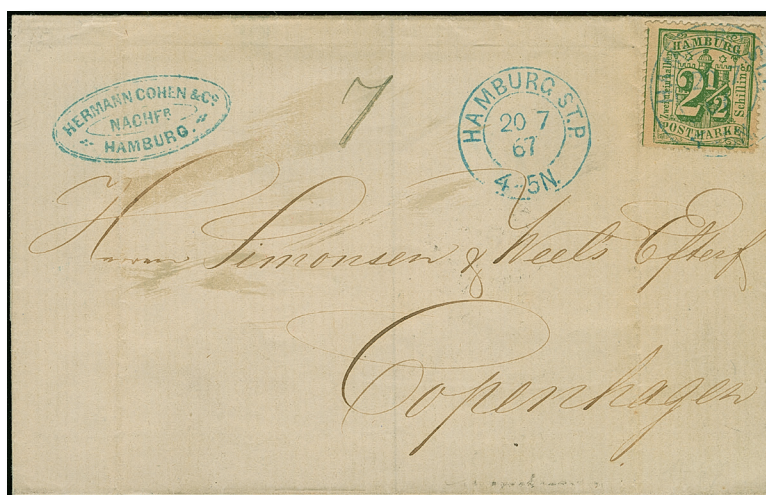 HERMANN COHEN & Co
NACHFR
HAMBURG.
7
HAMBURG ST.P.
20 7
67
4-5N.
HAMBURG
Zweieinhalb
2 1/2
Schilling
POSTMARKE
Herren Simonsen & Weel's Efterf
Copenhagen